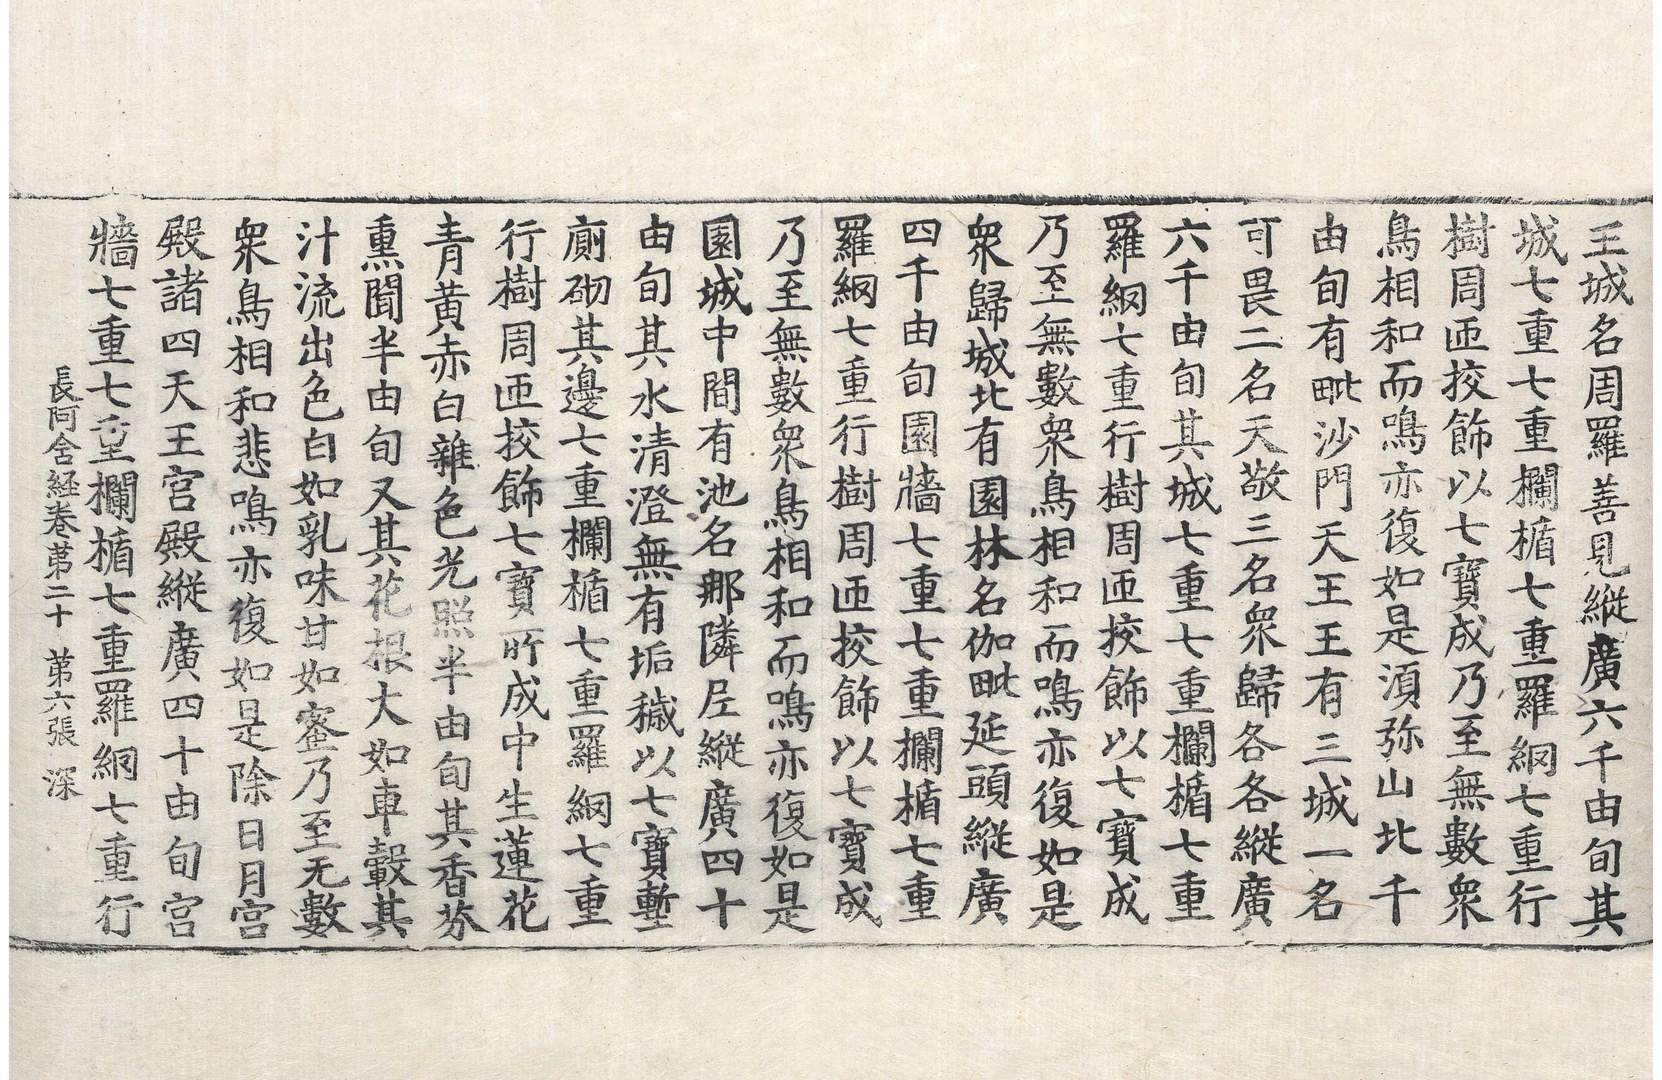 王城名周羅善見縱廣六千由旬其
城七重七重欄楯七重羅網七重行
樹周迊挍飾以七寶成乃至無數衆
鳥相和而鳴亦復如是湏弥山北千
由旬有毗沙門天王王有三城一名
可畏二名天敬三名衆歸各各縱廣
六千由旬其城七重七重欄楯七重
羅網七重行樹周迊挍飾以七寶成
乃至無數衆鳥相和而鳴亦復如是
衆歸城北有園林名伽毗延頭縱廣
四千由旬園牆七重七重欄楯七重
羅網七重行樹周迊挍飾以七寶成
乃至無數衆鳥相和而鳴亦復如是
園城中間有池名那隣尼縱廣四十
由旬其水清澄無有垢穢以七寶塹
廁砌其邊七重欄楯七重羅網七重
行樹周迊挍飾七寶所成中生蓮花
青黄赤白雜色光照半由旬其香芬
熏聞半由旬又其花根大如車轂其
汁流出色白如乳味甘如蜜乃至无數
衆鳥相和悲鳴亦復如是除日月宫
殿諸四天王宫殿縱廣四十由旬宫
牆七重七重欄楯七重羅網七重行
長阿含経卷苐二十 苐六張 深